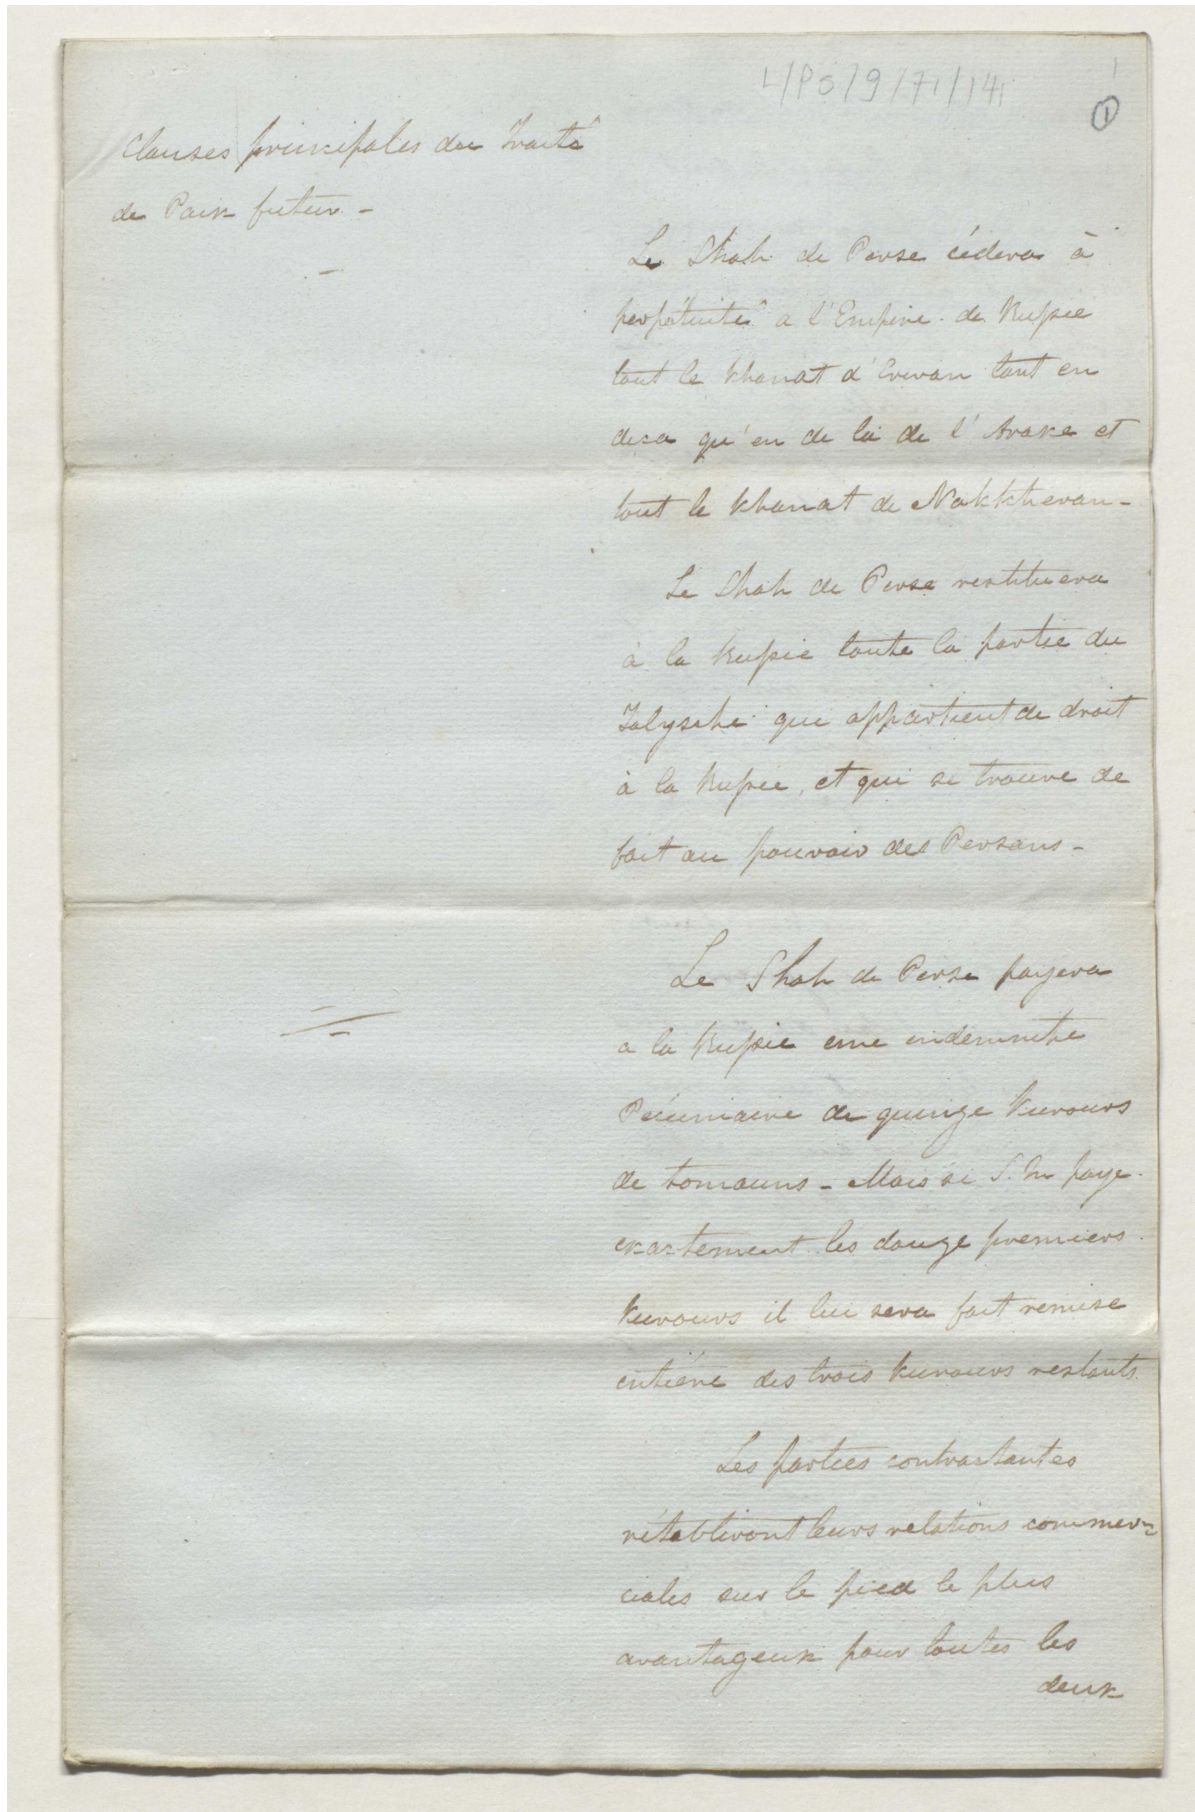 L/PS/9/71/141
1
1
Clauses principales du Traité
de Paix futur -
Le Shah de Perse cédera à
perpétuité a l'Empire de Russie
tout le Khanat d'Erivan tant en
deca qu'en de la de l'Araxe et
tout le Khanat de Nakhtchevan -
Le Shah de Perse restituera
à la Russie toute la partie du
Talysche qui appartient de droit
à la Russie, et qui se trouve de
fait au pouvoir des Persans -
Le Shah de Perse payera
a la Russie une indemnite
Pécuniaire de quinze Kurours
de tomauns - Mais si S. M paye
exactement les douze premiers
Kurours il lui sera fait remise
entiére des trois Kurours restants.
Les parties contractantes
rétabliront leurs relations commer=
ciales sur le pied le plus
avantageux pour toutes les
deux